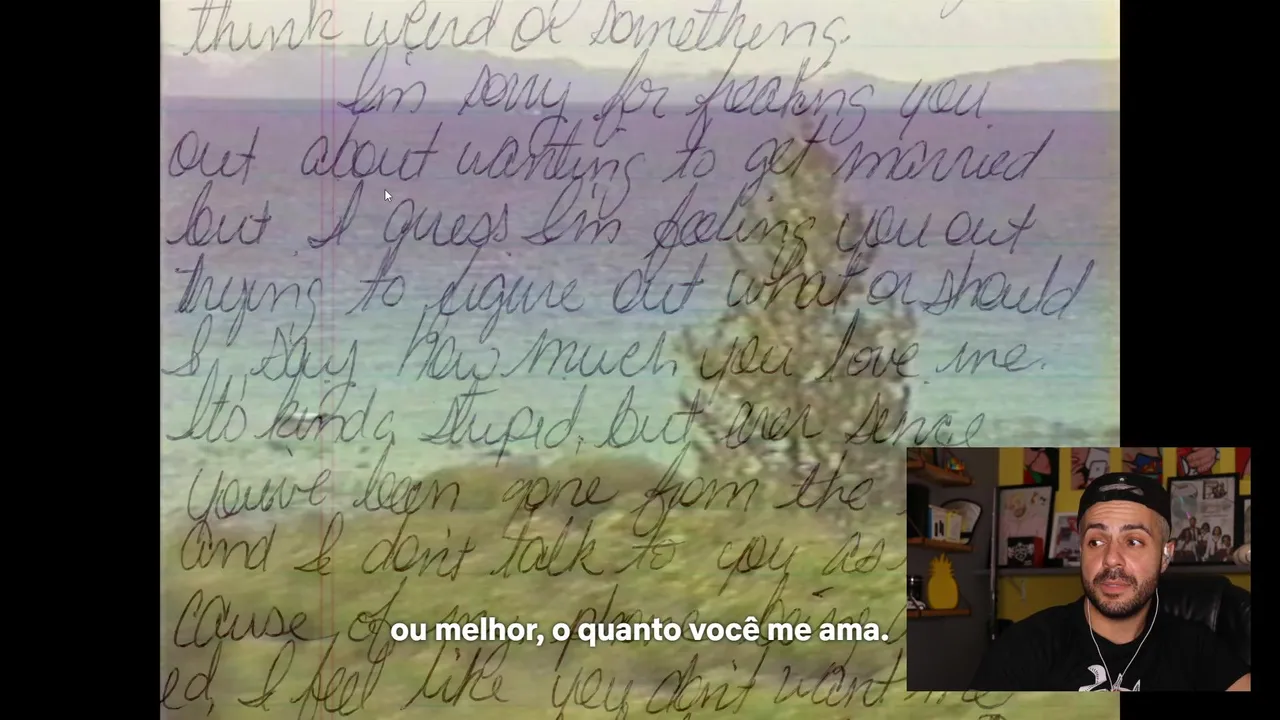 think weird or something.
I'm sorry for freaking you
out about wanting to get married
but I guess I'm feeling you out
trying to figure out what or should
I say how much you love me.
It's kinda stupid, but ever since
you've been gone from the
and I don't talk to you as
cause of my phone being
ed, I feel like you don't want me
ou melhor, o quanto você me ama.